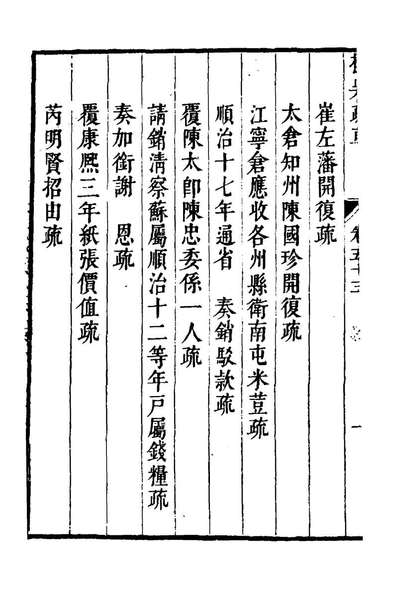 卷五十三 一
崔左藩開復疏
太倉知州陳國珍開復疏
江寧倉應收各州縣衛南屯米荳疏
順治十七年通省　奏銷駁款疏
覆陳太卽陳忠委係一人疏
請銷清察蘇屬順治十二等年戶屬錢糧疏
奏加銜謝　恩疏
覆康熈三年紙張價值疏
芮明賢招由疏